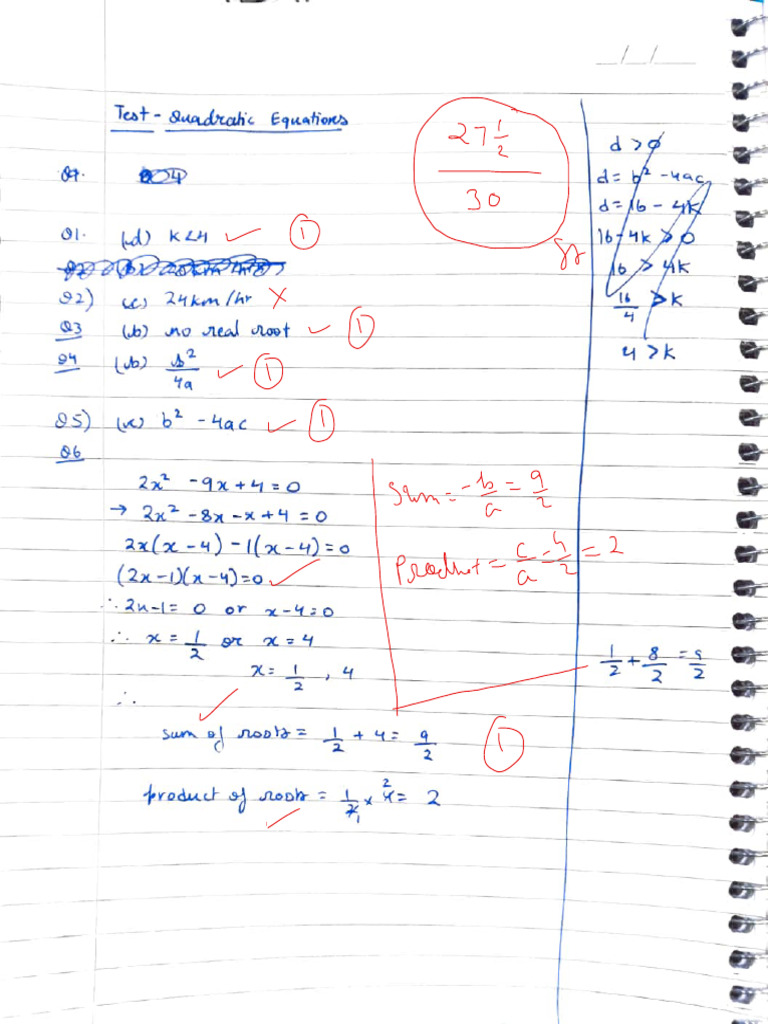 Test - Quadratic Equations
27 1/2
30
Q1. (d) k<4 ✓ ①
Q2) (c) 24km/hr ✗
Q3 (b) no real root ✓ ①
Q4 (b) b²/4a ✓ ①
Q5) (c) b² - 4ac ✓ ①
Q6
2x² - 9x + 4 = 0
→ 2x² - 8x - x + 4 = 0
2x(x - 4) - 1(x - 4) = 0
(2x-1)(x-4)=0 ✓
∴ 2x-1 = 0 or x-4=0
∴ x = 1/2 or x = 4
x = 1/2 , 4
∴
sum of roots = 1/2 + 4 = 9/2 ①
product of roots = 1/2 × 4 = 2
Sum = -b/a = 9/2
Product = c/a = 4/2 = 2
d > 0
d = b² - 4ac
d = 16 - 4k
16 - 4k > 0
16 > 4k
16/4 > k
4 > k
1/2 + 8/2 = 9/2